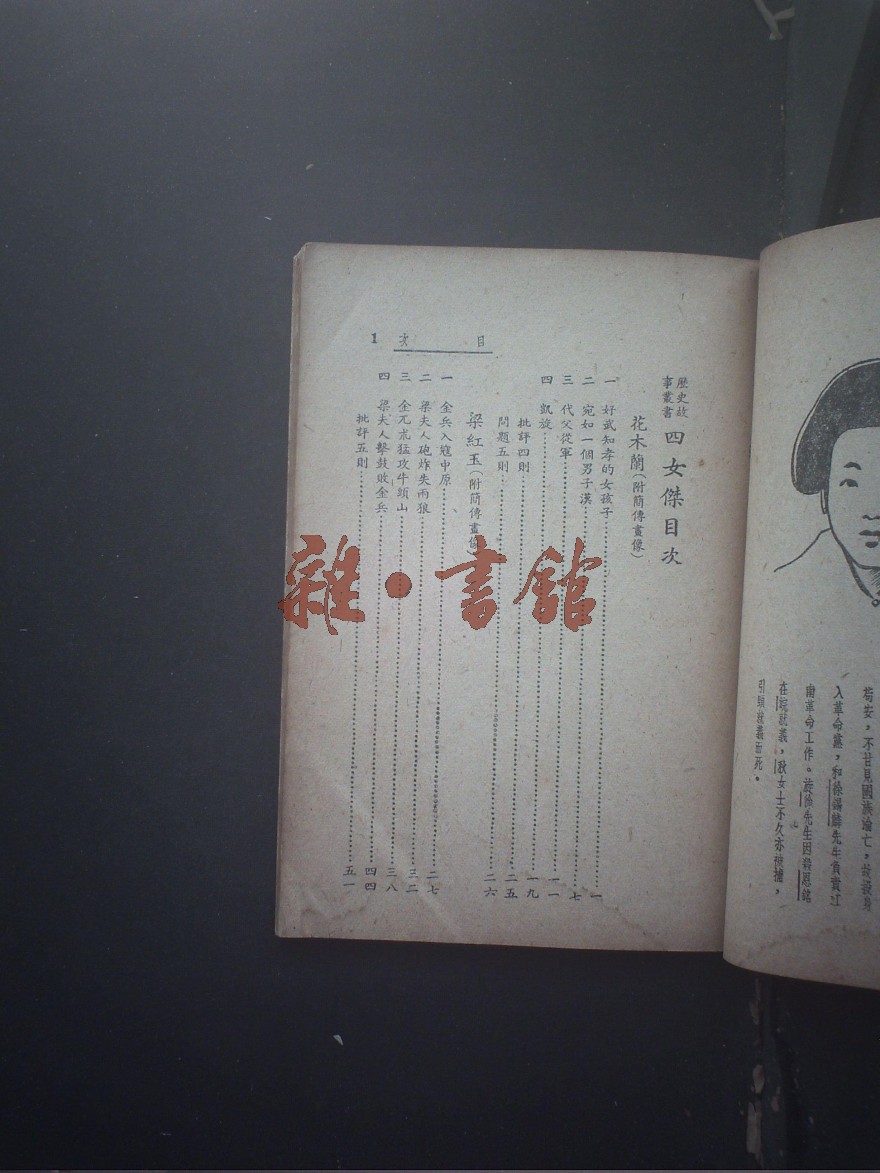 目次 1
歷史故事叢書 四女傑目次
花木蘭(附簡傳畫像)
一 好武知孝的女孩子 一
二 宛如一個男子漢 七
三 代父從軍 一一
四 凱旋 一九
批評四則 二五
問題五則 二六
梁紅玉(附簡傳畫像)
一 金兵入寇中原 二七
二 梁夫人砲炸失兩狼 三二
三 金兀朮猛攻牛頭山 三八
四 梁夫人擊鼓敗金兵 四四
批評五則 五一
雜·書館
苟安,不甘見國族淪亡,故投身
入革命黨,和徐錫麟先生負責江
南革命工作。旋徐先生因刺恩銘
在皖就義,秋女士不久亦被捕,
引頸就義而死。